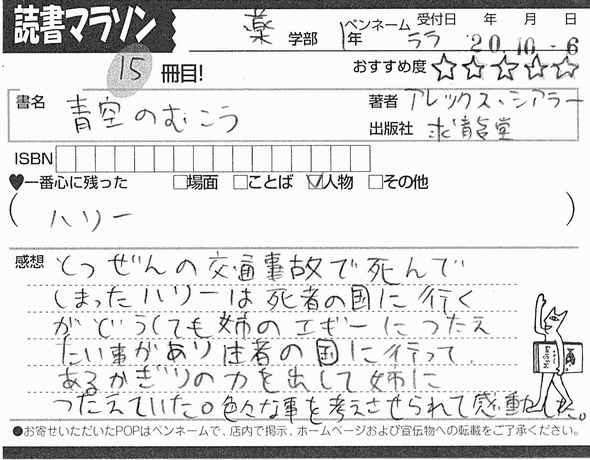 読書マラソン
薬 学部 1年 ペンネーム ララ 受付日 年 月 日 20.10.-6
15 冊目! おすすめ度 ☆☆☆☆☆
書名 青空のむこう 著者 アレックス・シアラー
出版社 求龍堂
ISBN
♥一番心に残った □場面 □ことば ☑人物 □その他
( ハリー )
感想 とつぜんの交通事故で死んで
しまったハリーは死者の国に行く
がどうしても姉のエギーにつたえ
たい事があり住者の国に行って、
あるかぎりの力を出して姉に
つたえていた。色々な事を考えさせられて感動した。
●お寄せいただいたPOPはペンネームで、店内で掲示、ホームページおよび宣伝物への転載をご了承ください。